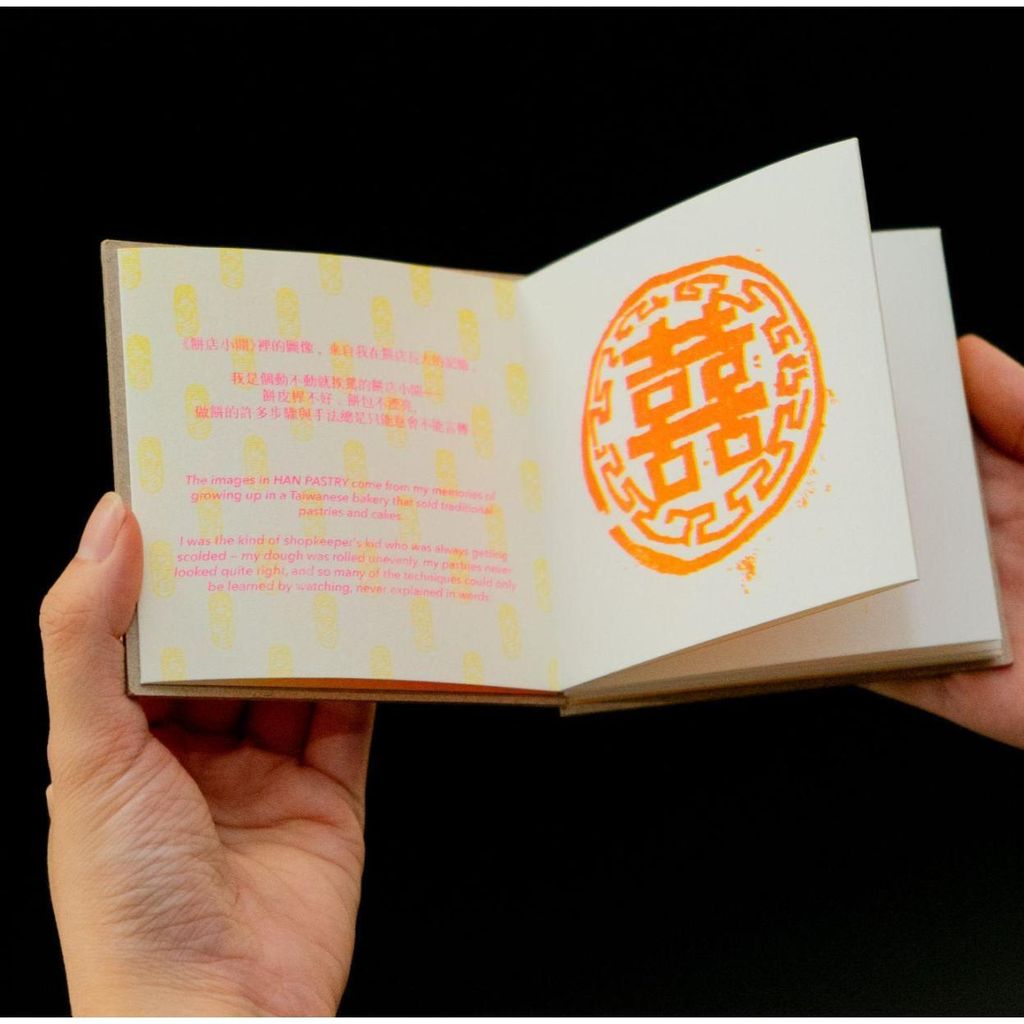 《餅店小開》裡的圖像，來自我在餅店長大的記憶。
我是個動不動就挨罵的餅店小開——
餅皮桿不好、餅包不漂亮，
做餅的許多步驟與手法總是只能意會不能言傳
The images in HAN PASTRY come from my memories of
growing up in a Taiwanese bakery that sold traditional
pastries and cakes.
I was the kind of shopkeeper's kid who was always getting
scolded – my dough was rolled unevenly, my pastries never
looked quite right, and so many of the techniques could only
be learned by watching, never explained in words.
囍